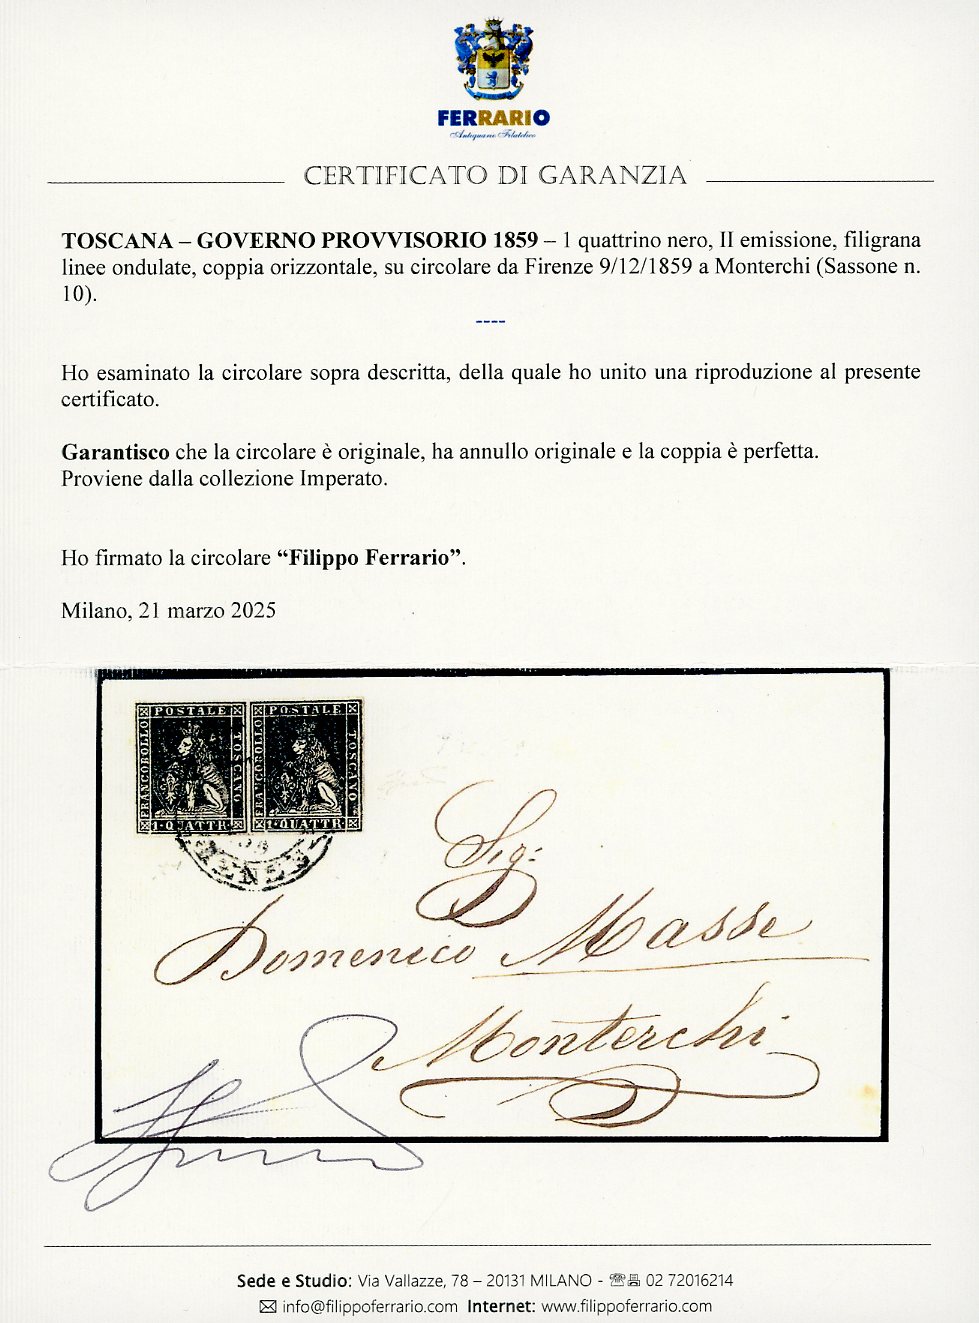 FERRARIO
Antiquario Filatelico
CERTIFICATO DI GARANZIA
TOSCANA – GOVERNO PROVVISORIO 1859 – 1 quattrino nero, II emissione, filigrana
linee ondulate, coppia orizzontale, su circolare da Firenze 9/12/1859 a Monterchi (Sassone n.
10).
----
Ho esaminato la circolare sopra descritta, della quale ho unito una riproduzione al presente
certificato.
Garantisco che la circolare è originale, ha annullo originale e la coppia è perfetta.
Proviene dalla collezione Imperato.
Ho firmato la circolare “Filippo Ferrario”.
Milano, 21 marzo 2025
FRANCOBOLLO POSTALE TOSCANO
1·QUATTR
FRANCOBOLLO POSTALE TOSCANO
1·QUATTR
Sig:
Domenico Masse
Monterchi
Sede e Studio: Via Vallazze, 78 – 20131 MILANO - 02 72016214
info@filippoferrario.com Internet: www.filippoferrario.com